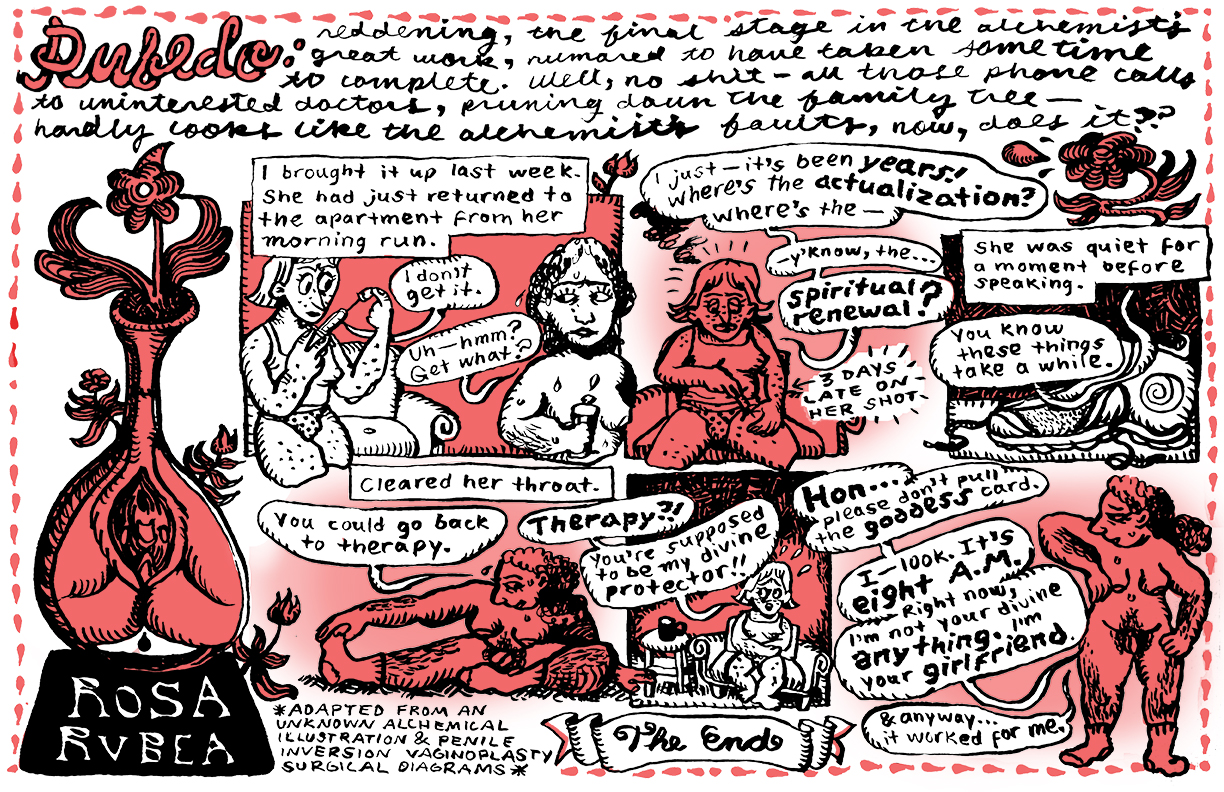 Rubedo:
reddening, the final stage in the alchemist's
great work, rumored to have taken some time
to complete. Well, no shit — all those phone calls
to uninterested doctors, pruning down the family tree —
hardly looks like the alchemist's faults, now, does it??
I brought it up last week.
She had just returned to
the apartment from her
morning run.
I don't
get it.
Uh—hmm?
Get what?
I just—it's been years!
where's the actualization?
where's the —
—y'know, the...
spiritual
renewal?
3 DAYS
LATE ON
HER SHOT.
She was quiet for
a moment before
speaking.
You know
these things
take a while.
Cleared her throat.
You could go back
to therapy.
Therapy?!
You're supposed
to be my divine
protector!!
Hon...
please don't pull
the goddess card.
I—look. It's
eight A.M.
Right now,
I'm not your divine
anything. I'm
your girlfriend.
& anyway...
it worked for me.
ROSA
RVBEA
*ADAPTED FROM AN
UNKNOWN ALCHEMICAL
ILLUSTRATION & PENILE
INVERSION VAGINOPLASTY
SURGICAL DIAGRAMS*
The End